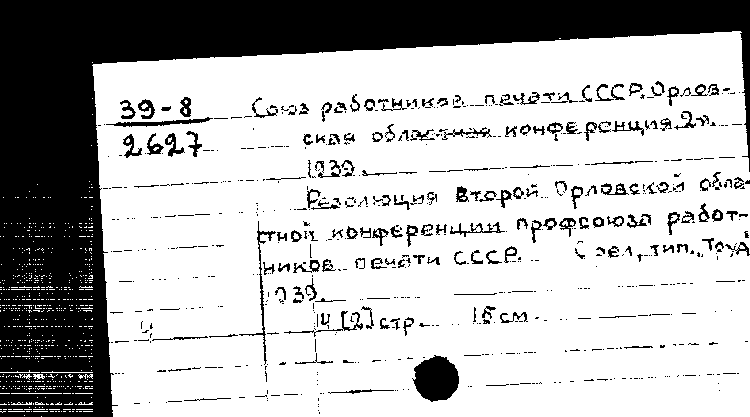 39-8 Союз работников печати СССР. Орлов-
2627 ская областная конференция, 2я.
1939.
Резолюция Второй Орловской обла-
стной конференции профсоюза работ-
ников печати СССР. Орел, тип. „Труд“
1939.
14 [2] стр. 15 см.
4